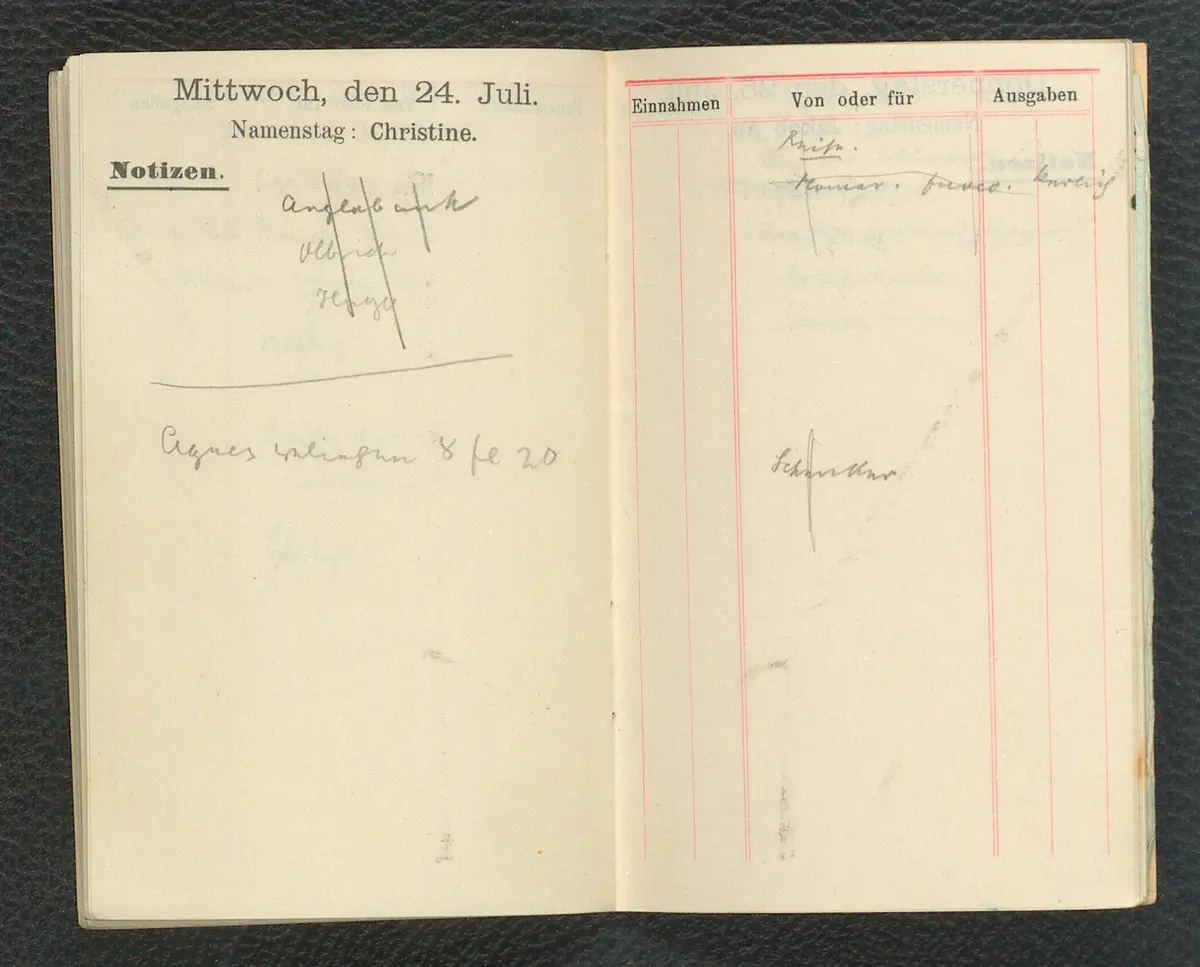 Mittwoch, den 24. Juli.
Namenstag: Christine.
Notizen.
Anglobank
Olbrich
Agnes 8 fl 20
Einnahmen Von oder für Ausgaben
Reise.
Schenker